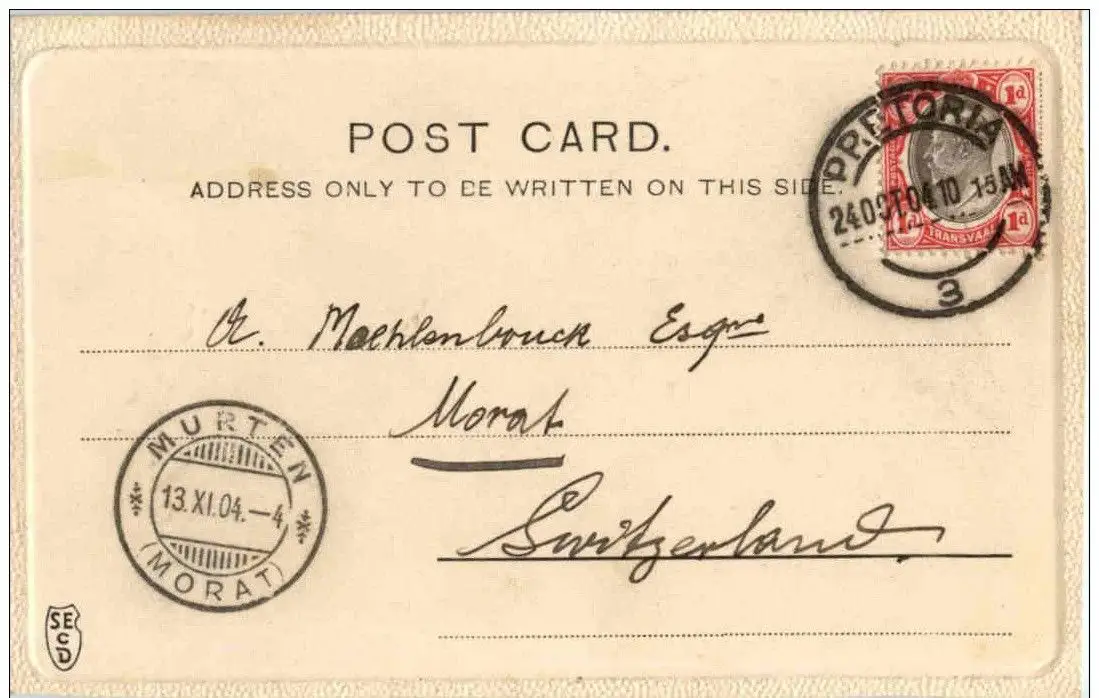 POST CARD.
ADDRESS ONLY TO BE WRITTEN ON THIS SIDE.
1d
PRETORIA
24 OCT 04 10 15 AM
1d 1d
TRANSVAAL
3
A. Moehlenbouck Esqre
Morat
Switzerland
MURTEN
13.XI.04.—4
(MORAT)
SE
C
D